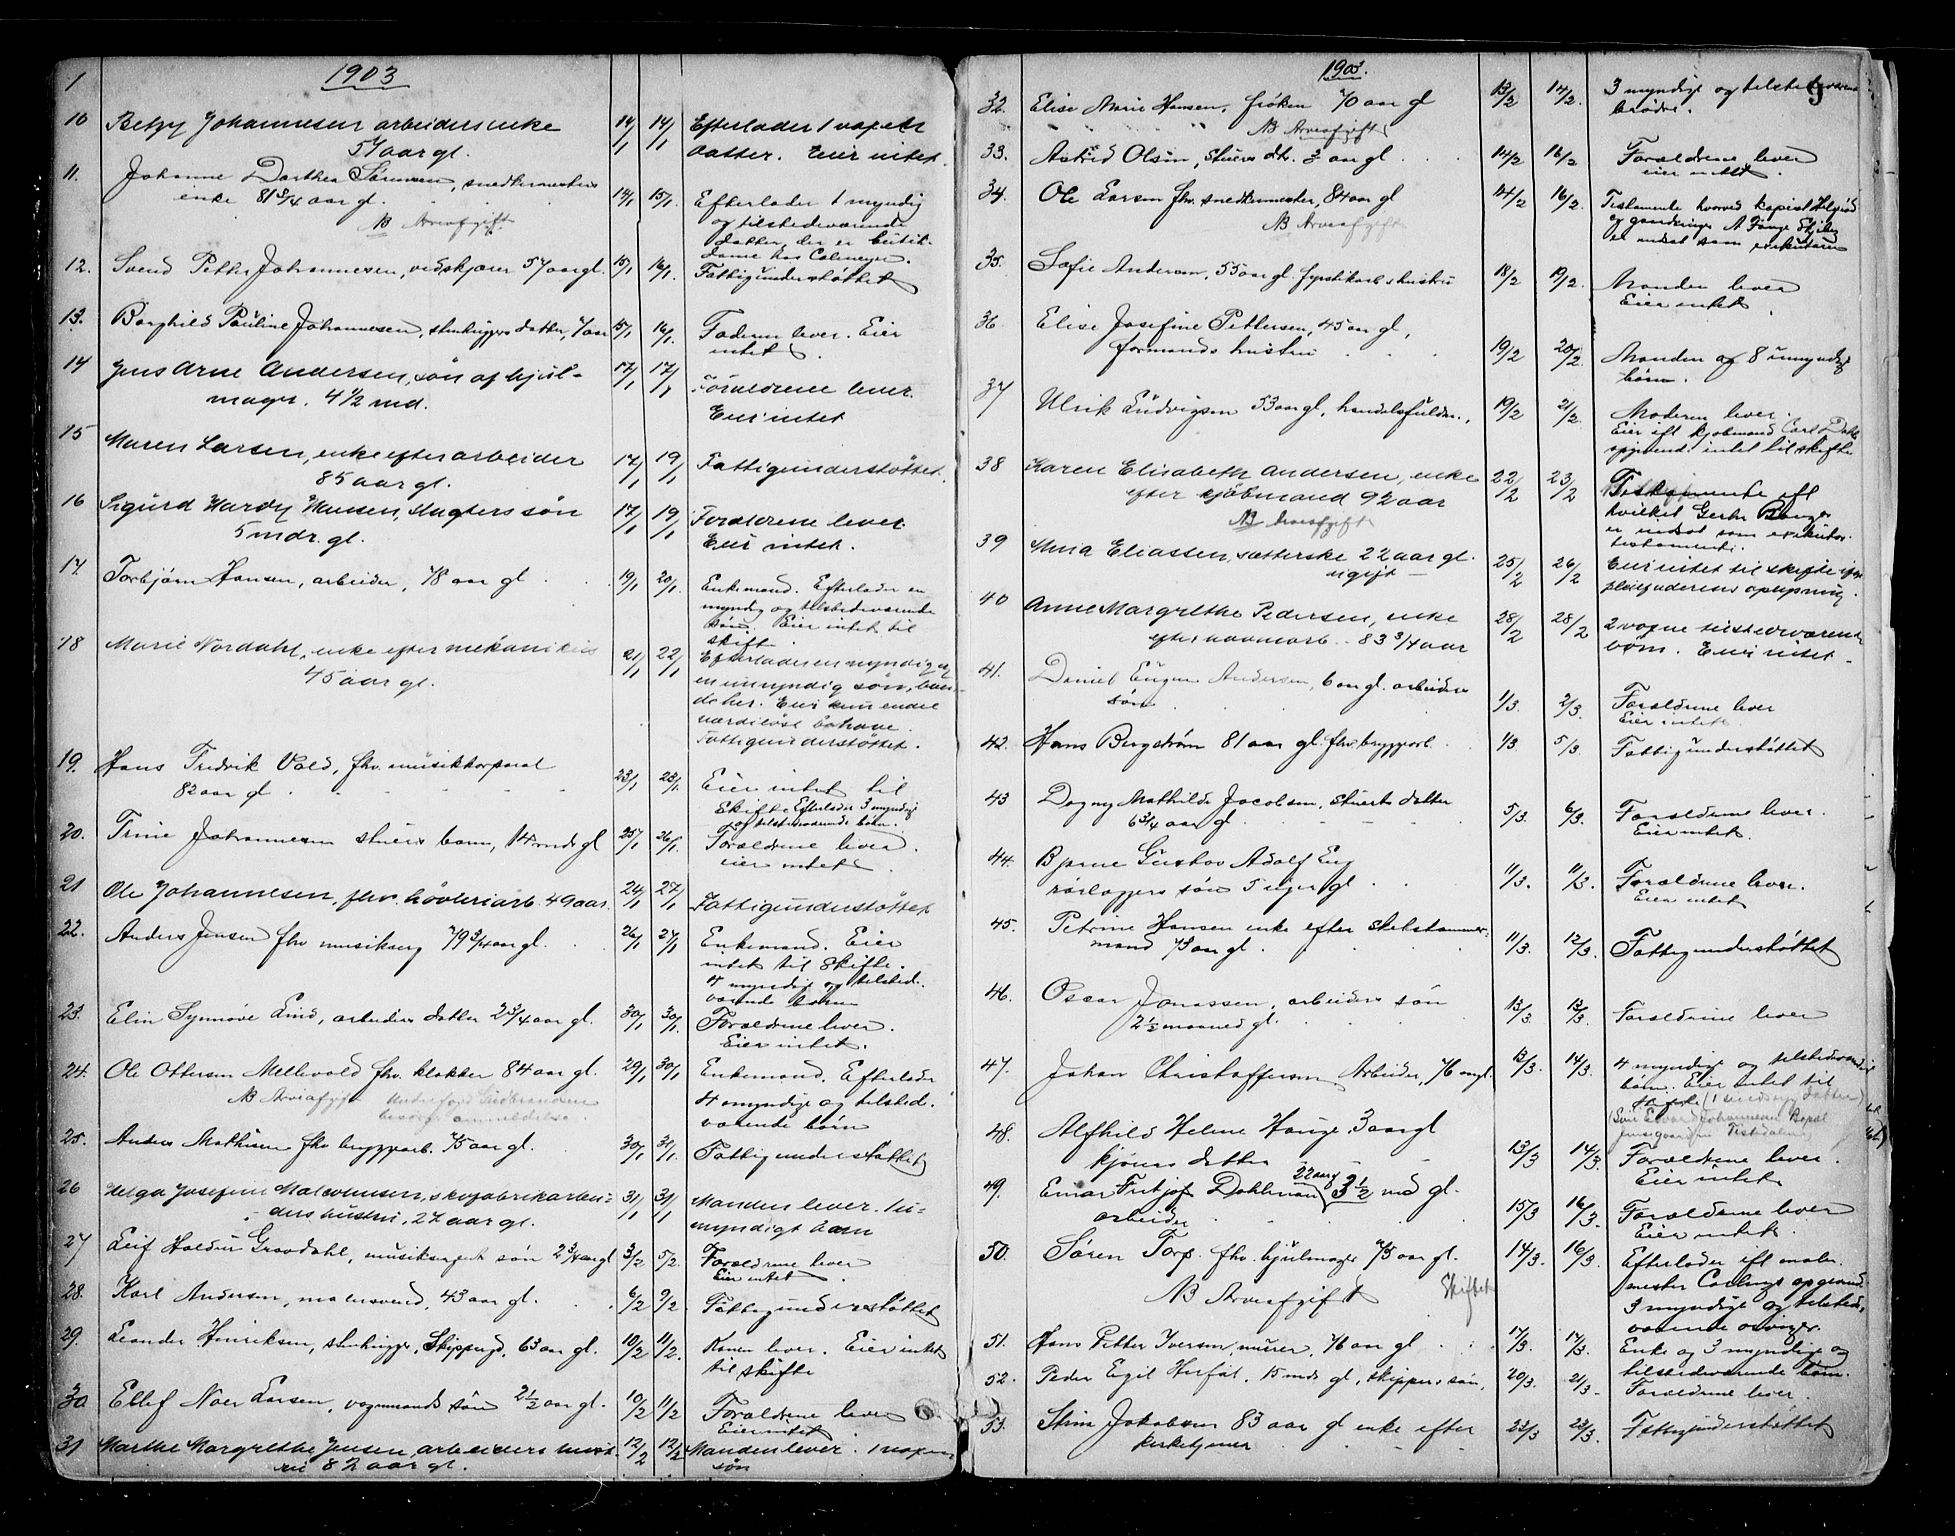 1
1903
10 Betzy Johannesen arbeiders enke 14/1 14/1 Efterlader 1 voxen
57 aar gl. datter. Eier intet.
11. Johanne Dorthea Sørensen, snedkermesters
enke 81 3/4 aar gl. 14/1 15/1 Efterlader 1 myndig
NB Arveafgift og tilstedeværende
datter, der er butik-
dame hos Colmeyer.
12. Svend Petter Johannesen, vedskjærer 57 aar gl. 15/1 16/1 Fattigunderstøttet
13. Borghild Pauline Johannesen, stenhuggers datter, 7 aar 15/1 16/1 Faderen lever. Eier
intet.
14 Jens Arne Andersen, søn af hjul- 17/1 17/1 Forældrene lever.
mager. 4 1/2 md. Eier intet
15 Maren Larsen, enke efter arbeider 17/1 19/1 Fattigunderstøttet.
85 aar gl.
16 Sigurd Hardy Hansen, slagters søn 17/1 19/1 Forældrene lever
5 mdr. gl. Eier intet.
17. Torbjørn Hansen, arbeider, 78 aar gl 19/1 20/1 Enkemand. Efterlader en
myndig og tilstedeværende
søn. Eier intet til
skifte.
18 Marie Nordahl, enke efter mekanikus 21/1 22/1 Efterlader en myndig og
45 aar gl. en umyndig søn, bæn-
de her. Eier kun endel
værdiløst bohave.
Fattigunderstøttet.
19. Hans Fredrik Vold, fhv. musikkorporal 23/1 23/1 Eier intet til
82 aar gl. Skifte. Efterlader 3 myndig
og tilstedeværende børn.
20. Trine Johannesen stuers barn, 14 mnds gl 25/1 26/1 Forældrene lever.
Eier intet
21 Ole Johannesen, fhv. høvleriarb. 49 aar. 24/1 27/1 Fattigunderstøttet
22. Anders Jensen fhv musikserg 79 3/4 aar gl. 26/1 27/1 Enkemand. Eier
intet til Skifte.
4 myndig og tilsted.
værende børn
23. Elin Synnøve Lind, arbeiders datter 2 3/4 aar gl. 30/1 30/1 Forældrene lever.
Eier intet.
24. Ole Ottersen Mellevold fhv. klokker 84 aar gl. 29/1 30/1 Enkemand. Efterlader
NB Arveafgift Gudbrandsen 4 myndige og tilsted.
besørger anmeldelse. værende børn
25. Anders Mathisen fhv bryggearb. 75 aar gl. 30/1 31/1 Fattigunderstøttet
26 Helga Josefine Malcolmsen, skofabrikarbei- 31/1 31/1 Manden lever. 1 u-
ders hustru, 27 aar gl. myndigt barn
27 Leif Haldur Gravdahl, musiksergent søn 2 3/4 aar gl 3/2 5/2 Forældrene lever
Eier intet.
28. Karl Andersen, malersvend, 43 aar gl. 6/2 9/2 Fattigunderstøttet
29. Leander Henriksen, stenhugger, Skippergd, 63 aar gl. 10/2 11/2. Konen lever. Eier intet
til skifte
30. Ellef Noer Larsen, vognmands søn 2 1/2 aar gl. 10/2 11/2 Forældrene lever
Eier intet
31 Marthe Margrethe Jensen, arbeiders hust- 12/2 12/2 Manden lever. 1 voxen
ru 82 aar gl. søn
1903. 9
32. Elise Marie Hansen, frøken 70 aar gl 13/2 14/2. 3 myndige og tilstedeværende
NB Arveafgift brødre.
33. Astrid Olsen, stuers dt. 3 aar gl 14/2 16/2 Forældrene lever
eier intet
34. Ole Larsen fhv. snedkermester, 84 aar gl 14/2 16/2. Testamente hvorved kopist Helgerød
NB Arveafgift og gaardeier A Fange
er indsat som exekutorer
35. Sofie Andersen, 55 aar gl. fyrstikarb.s hustru 18/2 19/2. Manden lever
Eier intet.
36 Elise Josefine Pettersen, 45 aar gl,
formands hustru 19/2 20/2. Manden og 8 umyndige
børn.
37 Ulrik Ludvigsen 53 aar gl, handelsfuldm., 19/2 21/2. Moderen lever.
Eier ifl kjøbmand Carl Dahls
opgivende intet til skifte
38 Karen Elisabeth Andersen, enke 22/2 23/2 Testamente ifl
efter kjøbmand 92 aar hvilket Gerhr Borger
NB Arveafgift er indsat som exekutor
testamenti.
39 Mina Eliassen, sætterske 22 aar gl. 25/2 26/2 Eier intet til skifte ifg
ugift pleiefaderens opgivning.
40 Anne Margrethe Pedersen, enke 28/2 28/2 2 voxne tilstedeværende
efter havnearb. 83 3/4 aar børn. Eier intet
41. Daniel Eugen Andersen, 6 aar gl. arbeiders
søn 1/3. 2/3. Forældrene lever
Eier intet
42. Hans Bergstrøm 81 aar gl. fhv. bryggearb. 1/3. 5/3. Fattigunderstøttet
43 Dagny Mathilde Jacobsen, stuerts datter
6 3/4 aar gl. 5/3. 6/3. Forældrene lever.
Eier intet.
44. Bjarne Gustav Adolf Eng
rørlæggers søn 5 uger gl 11/3. 11/3. Forældrene lever.
Eier intet
45. Petrine Hansen enke efter skibstømmer-
mand 73 aar gl. 11/3. 12/3. Fattigunderstøttet
46. Oscar Jonassen, arbeiders søn
2 1/2 maaned gl. 13/3. 13/3. Forældrene lever
47. Johan Christoffersen Arbeider, 76 aar gl. 13/3. 14/3. 4 myndige og tilstedeværende
børn. Eier intet til
skifte (1 datter)
Johannesen
Tistedalen
48. Alfhild Helene Hauge, 3 aar gl
kjøres datter 13/3 14/3. Forældrene lever.
Eier intet
49. Einar Fritjof Dahlman 22 aar 3 1/2 md gl.
arbeider 15/3 16/3. Forældrene lever
Eier intet.
50. Søren Torp. fhv. hjulmager 75 aar gl. 14/3. 16/3. Efterlader ifl maler
NB Arveafgift Skiftet mester Carlings opgivend
3 myndige og tilstede-
værende arvinger.
51. Hans Petter Iversen, murer, 76 aar gl 17/3. 17/3. Enke og 3 myndige og
tilstedeværende børn.
52. Peder Egil Herføl, 15 mds gl, skippers søn, 20/3. 21/3. Forældrene lever.
53. Stine Jakobsen 83 aar gl enke efter 23/3 23/3. Fattigunderstøttet
kirketjener